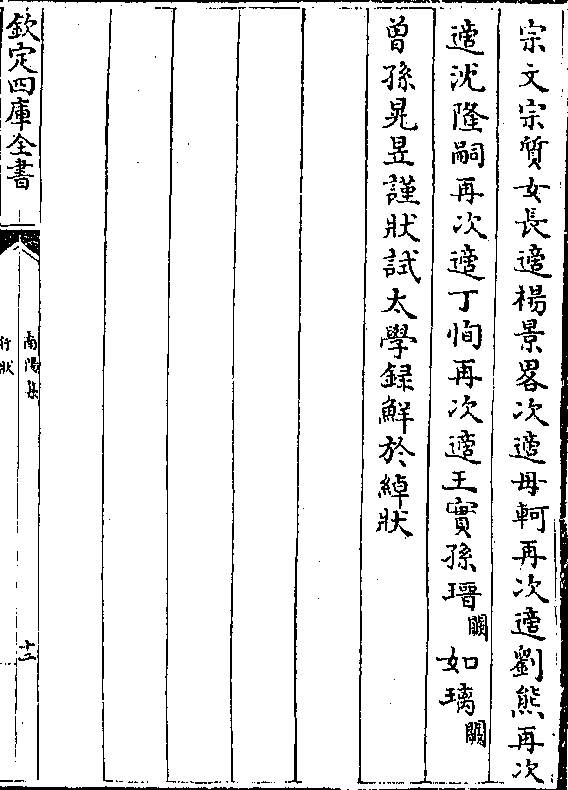 宗文宗質女長適楊景畧次適毋軻再次適劉熊再次
適沈隆嗣再次適丁恂再次適王實孫瑨闕如璃闕
曽孫晃昱謹狀試太學録鮮於綽狀
欽定四庫全書
南陽集
行狀
十二